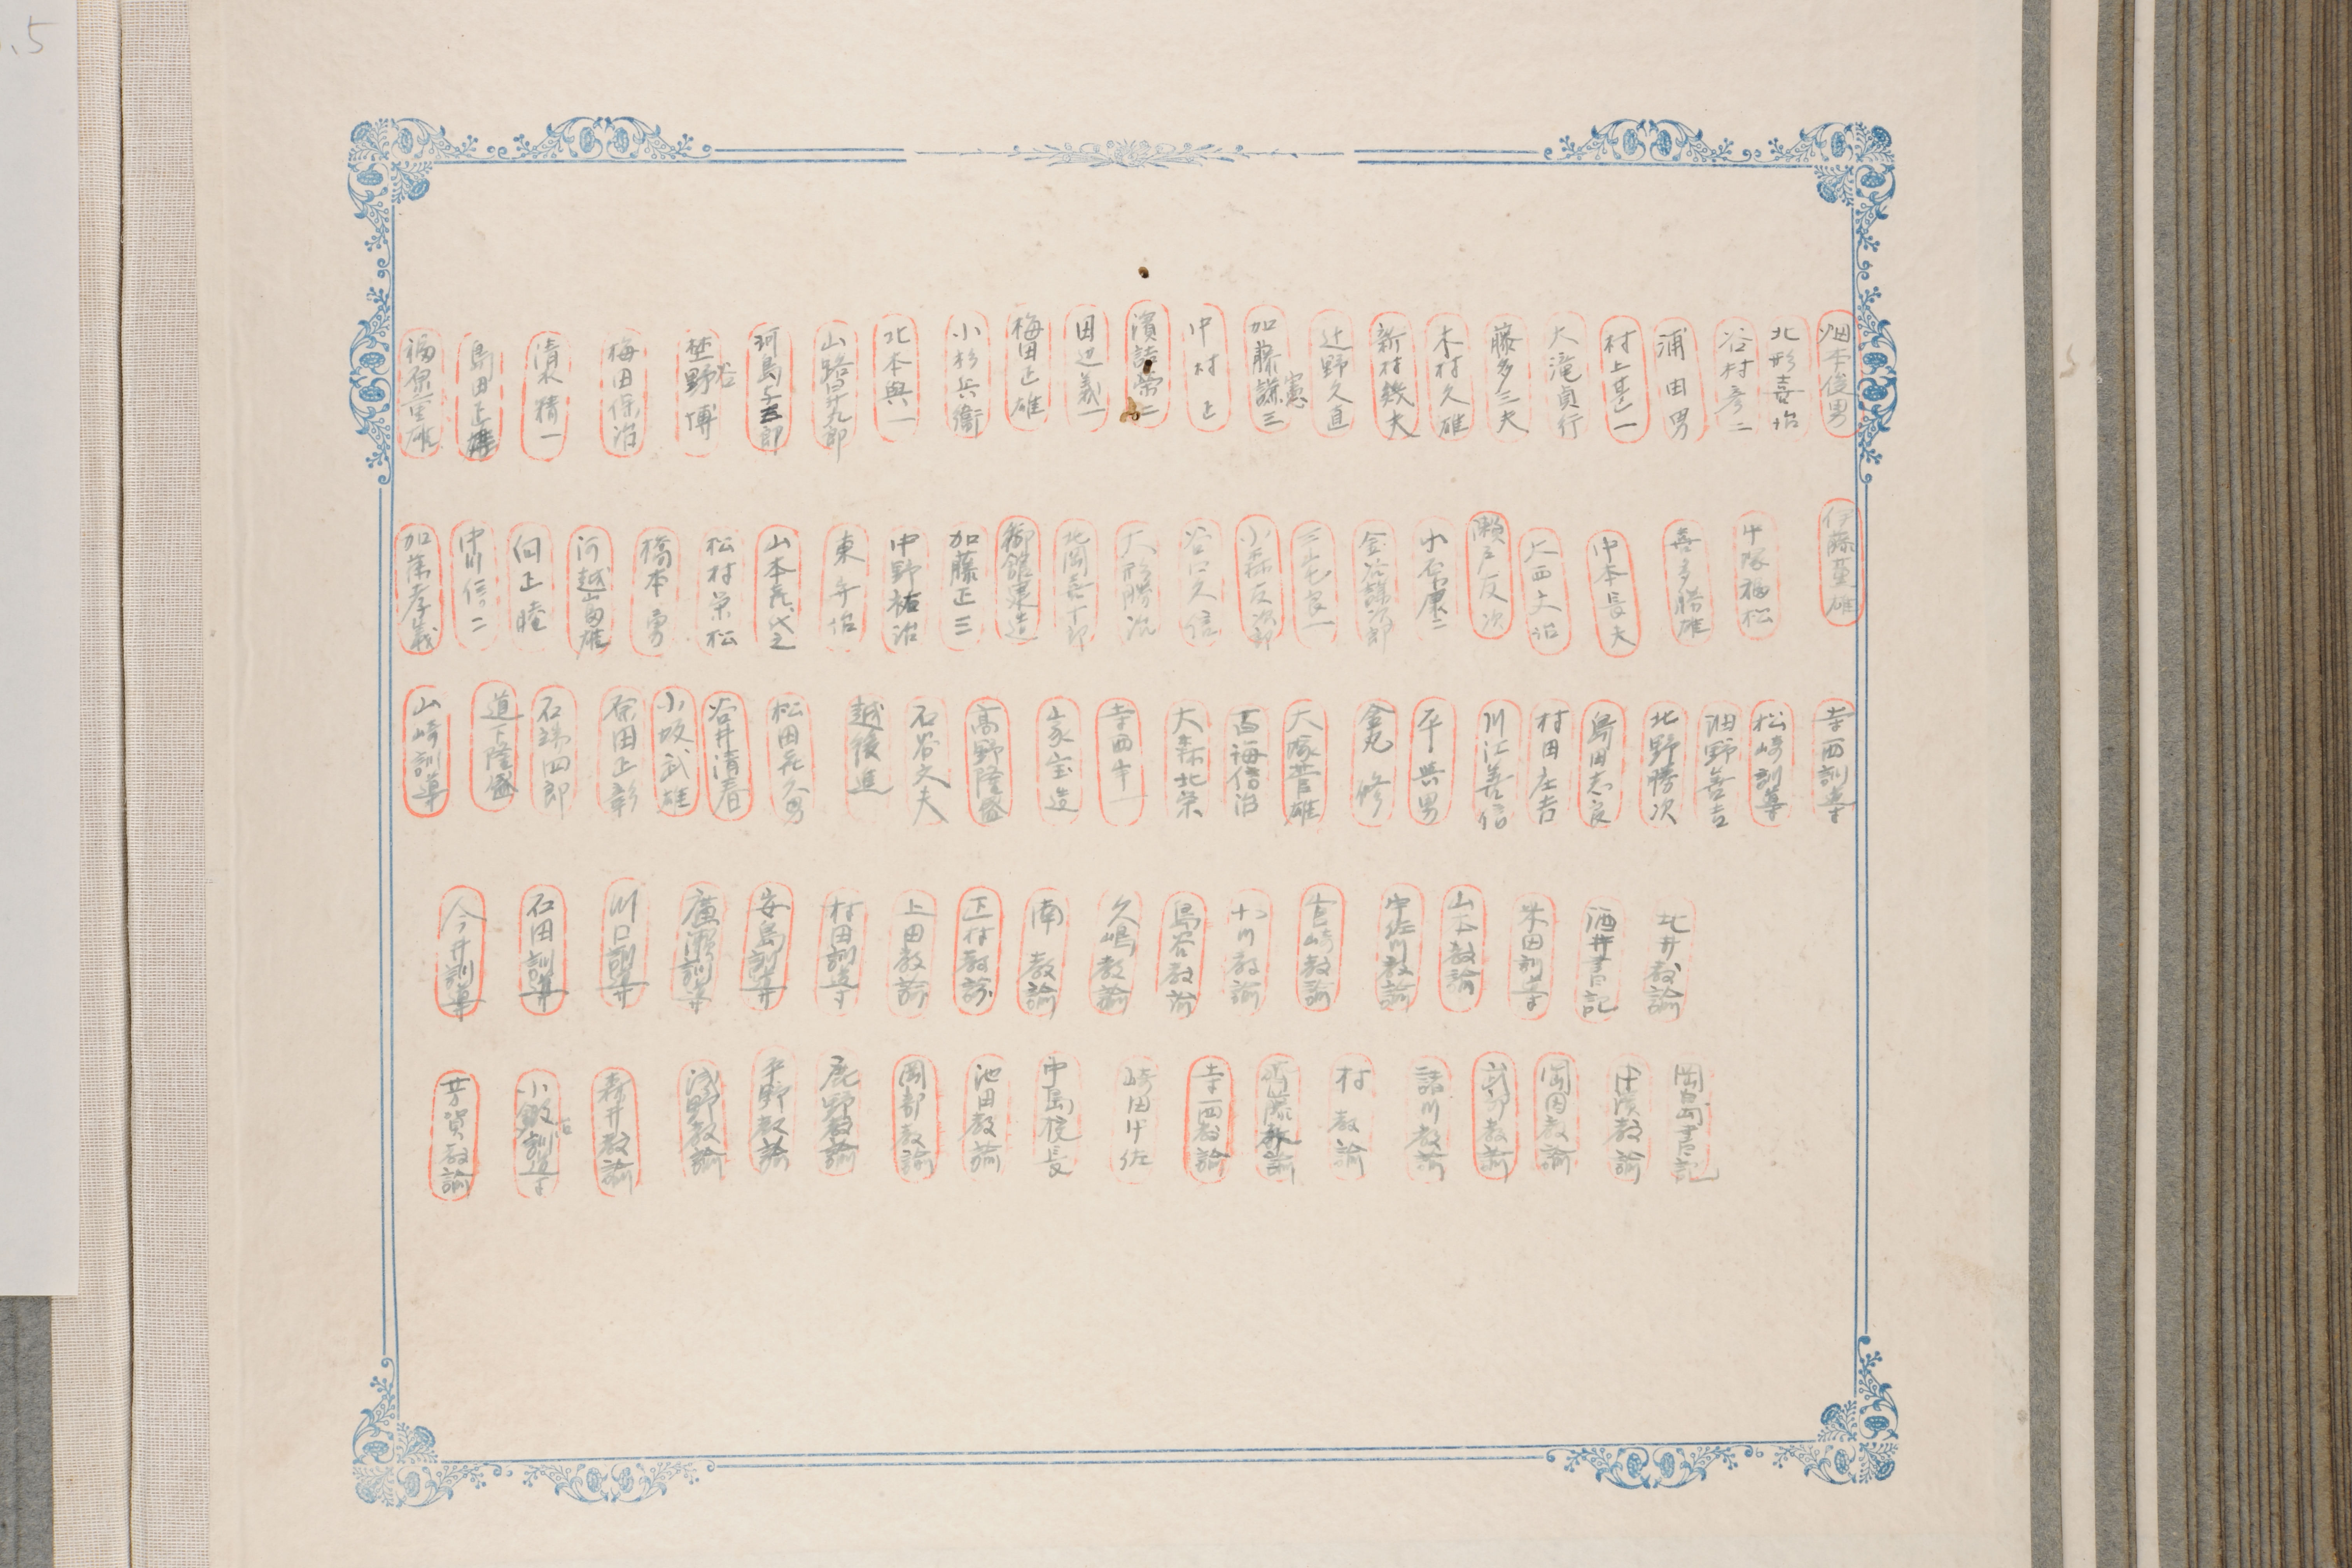 畑本俊男
北形喜治
谷村彦二
浦田男
村上甚一
大滝貞行
藤多三夫
木村久雄
新村幾夫
辻野久直
加藤謙三
憲
中村正
濱詰栄二
田辺義一
梅田正雄
小杉兵衛
北本與一
山路昇九郎
河島与三郎
埜野博
谷
梅田保治
清水精一
島田正雄
福保重雄
伊藤
中塚福松
喜多勝雄
中本長夫
上西大治
瀬戸友次
小石
金谷
三宅良一
小森友次郎
谷口久信
大形勝次
北岡喜
御舘
加藤正三
中野祐治
東
山本
松村栄松
橋本勇
河越富雄
向正睦
中川信二
加藤孝義
寺西訓導
松崎訓導
畑野善吉
北野勝次
島田志良
村田庄吉
川江善信
平與男
金丸修
大塚菅雄
百海信治
大森北栄
寺西幸一
家宝造
高野隆盛
石谷文夫
越後進
松田
谷井清春
小坂武雄
原田正彰
石端四郎
道下隆盛
山崎訓導
北井教諭
酒井書記
米田訓導
山本教諭
中佐川教諭
吉崎教諭
十川教諭
島谷教諭
久嶋教諭
南教諭
正村教諭
上田教諭
村田訓導
安島訓導
廣瀬訓導
川口訓導
石田訓導
今井訓導
岡島書記
中濱教諭
岡田教諭
教諭
諸川教諭
村教諭
斉藤教諭
寺西教諭
崎田中佐
中島校長
池田教諭
岡部教諭
鹿野教諭
平野教諭
浅野教諭
森井教諭
小 訓導
芳賀教諭